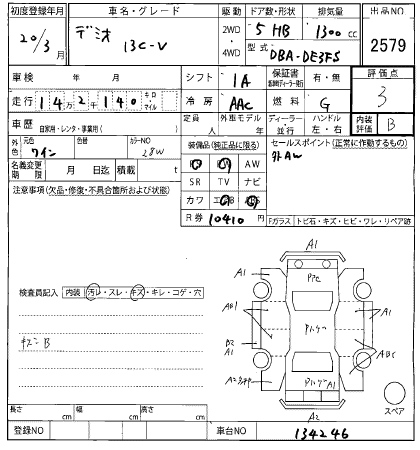 初度登録年月 車名・グレード 駆動 ドア数・形状 排気量 出品NO
20/3月 デミオ 13C-V 2WD・4WD 5 HB 1300cc 2579
型式 DBA-DE3FS
車検 年 月 シフト IA 保証書 有・無 評価点
3
走行 14万2千140 キロ・マイル 冷房 AAC 燃料 G
車歴 自家用・レンタ・事業用( ) 定員 人 外車モデル 年 ディーラー・並行 ハンドル 左・右 内装評価 B
外色 元色 ワイン 色替 カラーNO 28W
装備品(純正品に限る) セールスポイント(正常に動作するもの)
社外AW
AW
名義変更期限 月 日迄 積載 t SR TV ナビ
注意事項(欠品・修復・不具合箇所および状態) カワ
R券 10410円
Fガラス トビ石・キズ・ヒビ・ワレ・リペア跡
A1
A1
検査員記入 内装 汚レ・スレ・キズ・キレ・コゲ・穴
A1
キズB
B2
A1
A1
A2
スペア
長さ cm 幅 cm 高さ cm
登録NO 車台NO 134246